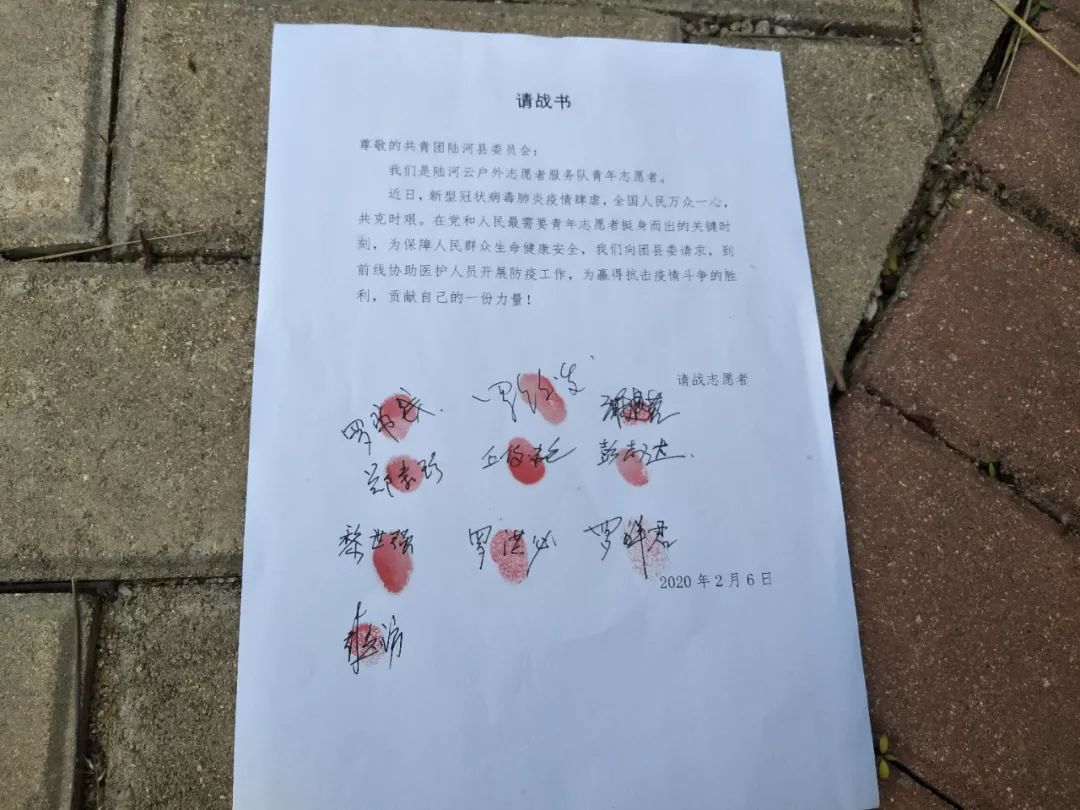 请战书
尊敬的共青团陆河县委员会：
我们是陆河云户外志愿者服务队青年志愿者。
近日，新型冠状病毒肺炎疫情肆虐，全国人民万众一心，
共克时艰。在党和人民最需要青年志愿者挺身而出的关键时
刻，为保障人民群众生命健康安全，我们向团县委请求，到
前线协助医护人员开展防疫工作，为赢得抗击疫情斗争的胜
利，贡献自己的一份力量！
请战志愿者
彭志达
黎世强 罗洪必
2020年2月6日